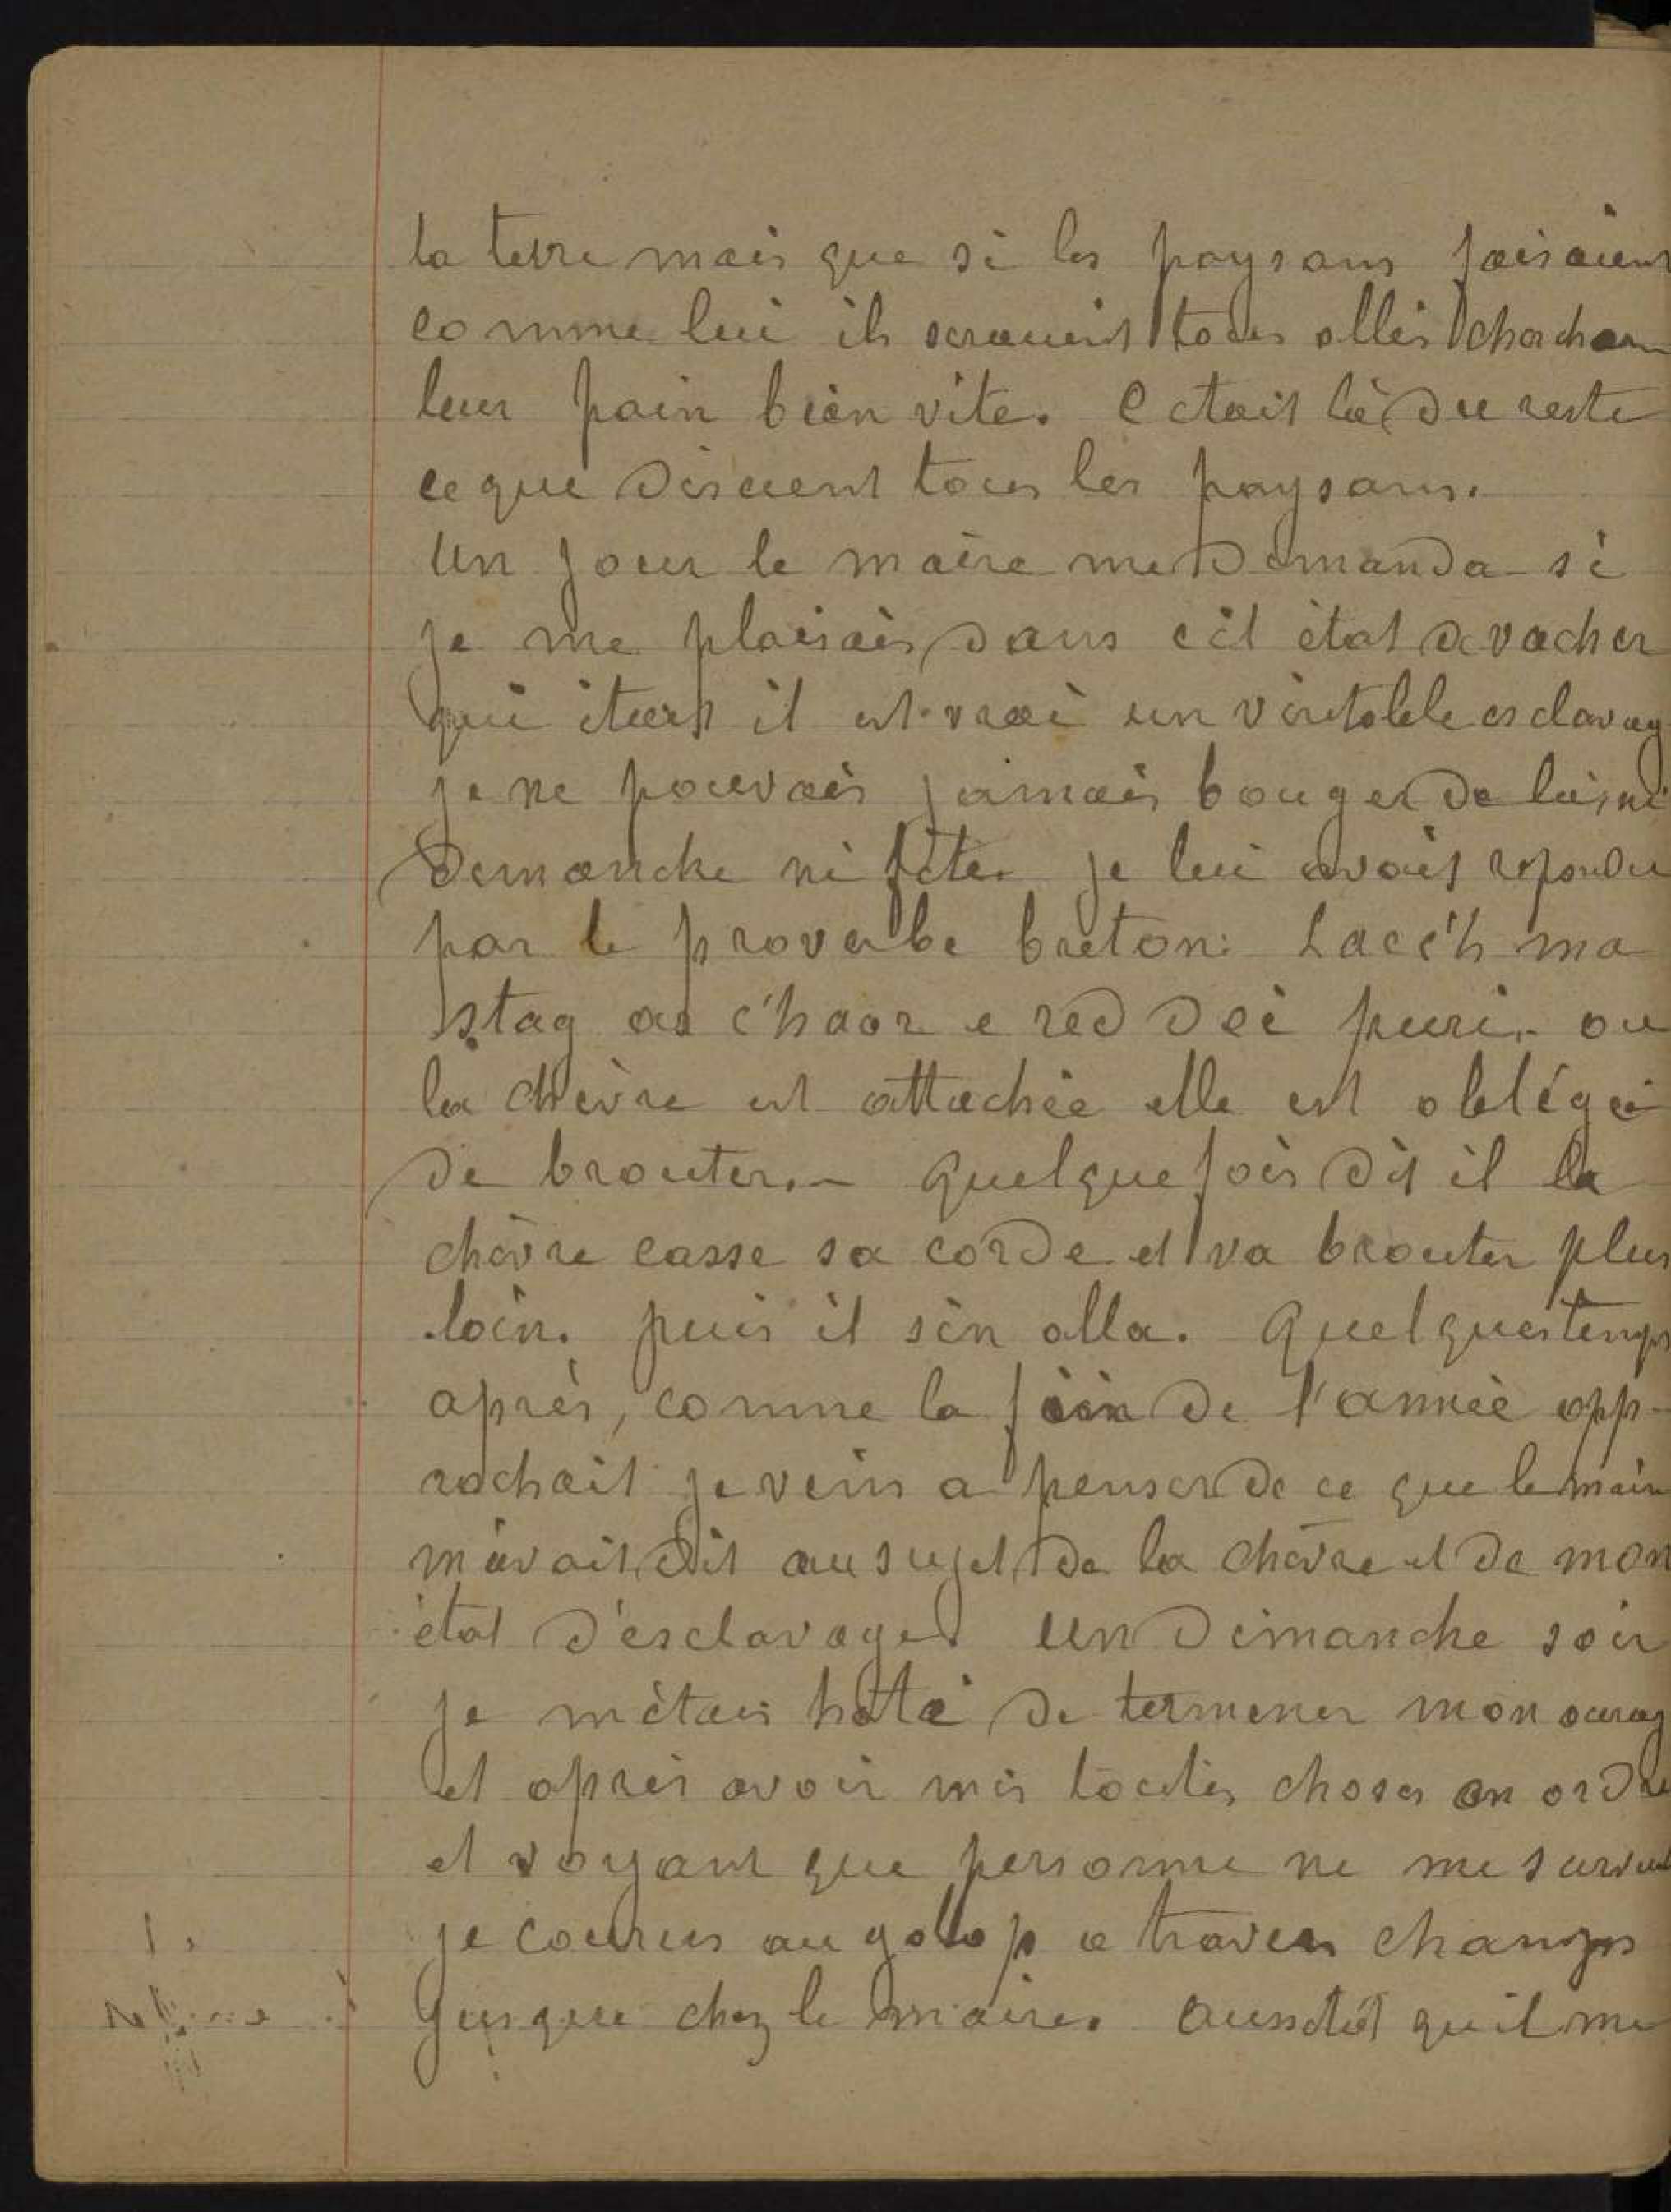 la terre mais que si les paysans faisaient
comme lui ils seraient tous allés chercher
leur pain bien vite. C etait là du reste
ce que disaient tous les paysans.
Un jour le maire me demanda si
je me plaisais dans cet état de vacher
qui était il est vrai un véritable esclavag
je ne pouvais jamais bouger de là, ni
dimanche ni fête. je lui avais repondu
par le proverbe breton: Lac'h ma
stag ar c'haor e red dei puri. ou
la chèvre est attachée elle est obligée
de brouter. – quelque fois dit il la
chèvre casse sa corde et va brouter plus
loin. puis il s'en alla. Quelques temps
après, comme la fin de l'année app-
rochait je vins a penser de ce que le maire
m'avait dit au sujet de la chèvre et de mon
état d'esclavage. Un dimanche soir
je m'étais hâté de terminer mon ouvrag
et après avoir mis toutes choses en ordre
et voyant que personne ne me
je courus au galop a travers champs
jusque chez le maire. Aussitôt qu'il me